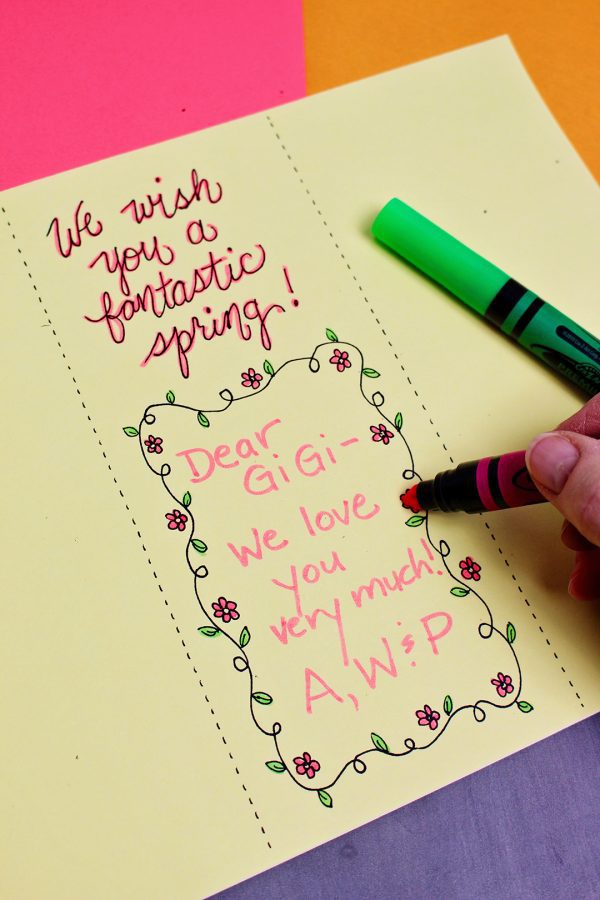 We wish
you a
fantastic
spring!
Dear
GiGi-
We love
you
very much!
A, W & P